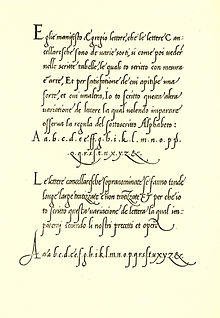 E glie manifesto Egregio lettore, che le lettere Can-
cellaresche sono de varie sorti, si come poi veder
nelle scritte tabelle, le quali io scritto con mesura
e arte, Et per satisfatione de cui apitisse una
sorte, et cui unaltra, Io to scritto questa altra
variatione de littere la qual volendo imparare
osserva la regula del sottoscritto Alphabeto:
A a.b.c.d.e.ee.ff.g.h.i.k.l.m.n.o.p.
q.r.s.t.u.x.y.z.&
Le lettere cancellaresche sopranominate se fanno tonde
longe large tratizzate e non tratizzate Et per che io
to scritto questa variatione de lettera la qual im-
pararai secundo li nostri precetti et opera
A a.b.c.d.e.f.g.h.i.k.l.m.n.o.p.q.r.s.t.u.x.y.z.&